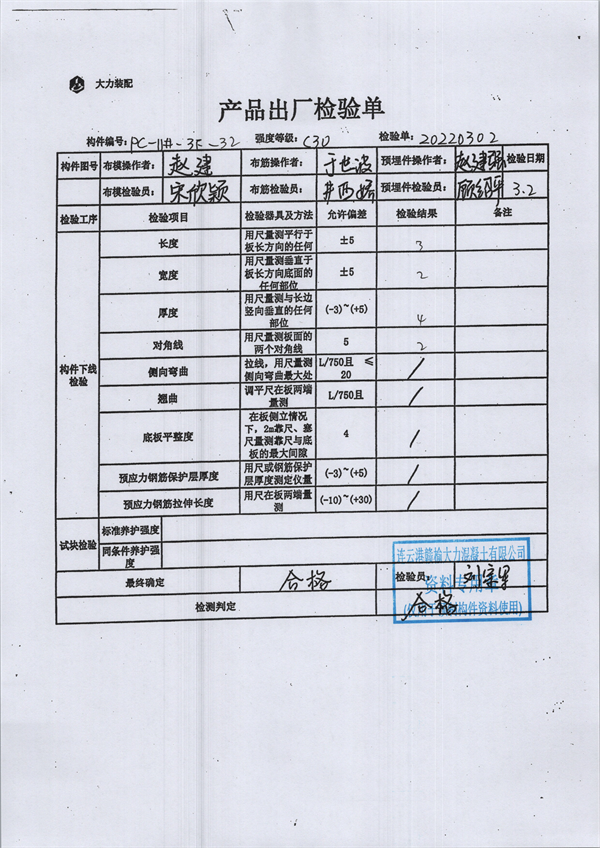 大力装配
产品出厂检验单
构件编号: PC-11#-3F-32 强度等级: C30 检验单: 20220302
构件图号 布模操作者: 赵建 布筋操作者: 于世波 预埋件操作者: 赵建 检验日期
布模检验员: 宋欣颖 布筋检验员: 预埋件检验员: 3.2
检验工序 检验项目 检验器具及方法 允许偏差 检验结果 备注
构件下线检验
长度 用尺量测平行于板长方向的任何 ±5 3
宽度 用尺量测垂直于板长方向底面的任何部位 ±5 2
厚度 用尺量测与长边竖向垂直的任何部位 (-3)~(+5) 4
对角线 用尺量测板面的两个对角线 5 2
侧向弯曲 拉线，用尺量测侧向弯曲最大处 L/750且 ≤20 /
翘曲 调平尺在板两端量测 L/750且 /
底板平整度 在板侧立情况下，2m靠尺、塞尺量测靠尺与底板的最大间隙 4 /
预应力钢筋保护层厚度 用尺或钢筋保护层厚度测定仪量 (-3)~(+5) /
预应力钢筋拉伸长度 用尺在板两端量测 (-10)~(+30) /
试块检验 标准养护强度
同条件养护强度
连云港赣榆大力混凝土有限公司
最终确定 合格 检验员:
资料专用章
检测判定 合格
构件资料使用)